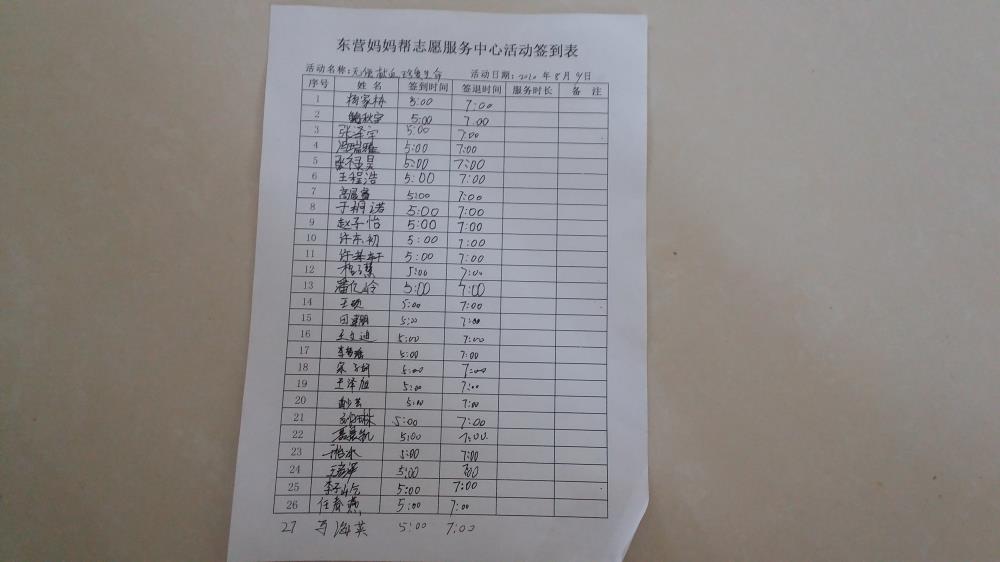 东营妈妈帮志愿服务中心活动签到表
活动名称：无偿献血 珍爱生命 活动日期：2020 年 8 月 9 日
序号 姓 名 签到时间 签退时间 服务时长 备 注
1 杨家林 5:00 7:00
2 鲍秋宇 5:00 7:00
3 张泽宇 5:00 7:00
4 冯瑞雅 5:00 7:00
5 张禄昊 5:00 7:00
6 王程浩 5:00 7:00
7 5:00 7:00
8 于桐诺 5:00 7:00
9 赵子怡 5:00 7:00
10 许东初 5:00 7:00
11 许 轩 5:00 7:00
12 5:00 7:00
13 潘亿岭 5:00 7:00
14 王 5:00 7:00
15 田 5:00 7:00
16 王文迪 5:00 7:00
17 李 5:00 7:00
18 宋子 5:00 7:00
19 王泽旭 5:00 7:00
20 5:00 7:00
21 5:00 7:00
22 5:00 7:00
23 5:00 7:00
24 5:00 7:00
25 李子屹 5:00 7:00
26 任春燕 5:00 7:00
27 海英 5:00 7:00